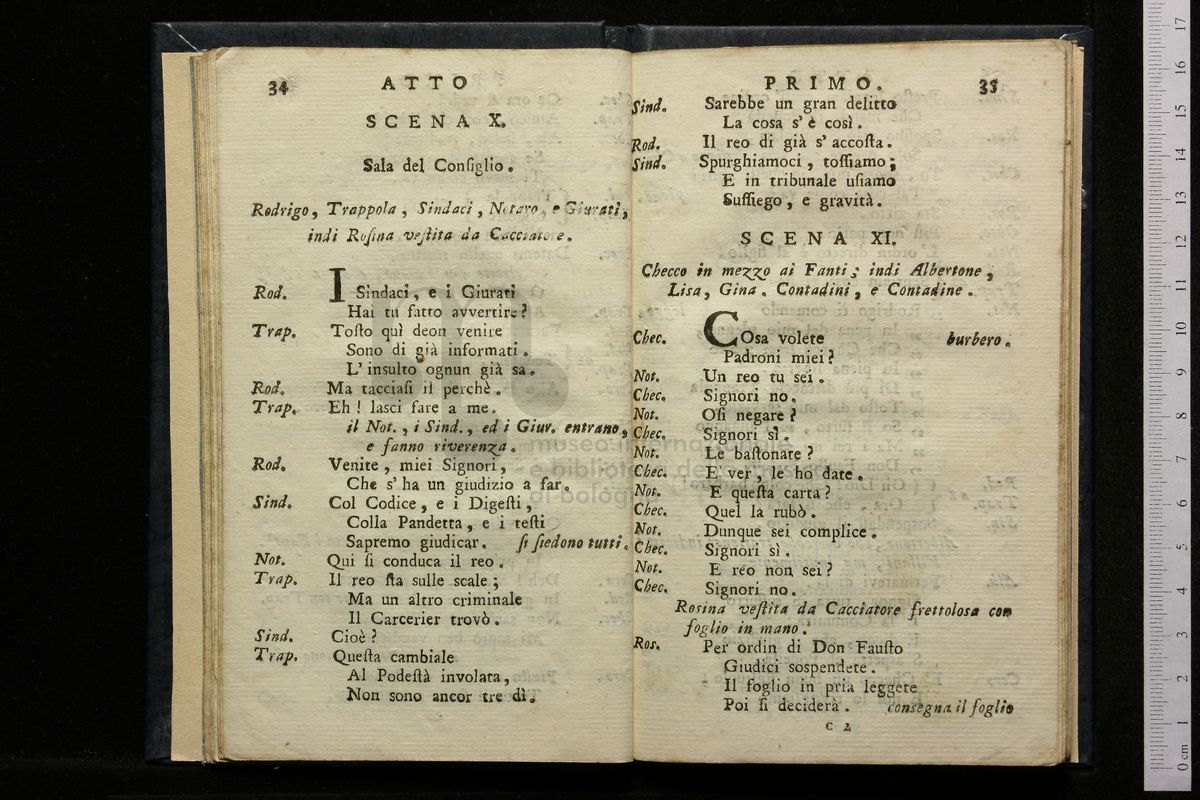 34
ATTO
SCENA X.
Sala del Conſiglio.
Rodrigo, Trappola, Sindaci, Notaro, e Giurati,
indi Roſina veſtita da Cacciatore.
Rod. I Sindaci, e i Giurati
Hai tu fatto avvertire?
Trap. Toſto quì deon venire
Sono di già informati.
L' inſulto ognun già sa.
Rod. Ma tacciaſi il perchè.
Trap. Eh! laſci fare a me.
il Not., i Sind., ed i Giur. entrano,
e fanno riverenza.
Rod. Venite, miei Signori,
Che s' ha un giudizio a far.
Sind. Col Codice, e i Digeſti,
Colla Pandetta, e i teſti
Sapremo giudicar. ſi ſiedono tutti.
Not. Qui ſi conduca il reo.
Trap. Il reo ſta sulle scale;
Ma un altro criminale
Il Carcerier trovò.
Sind. Cioè?
Trap. Queſta cambiale
Al Podeſtà involata,
Non sono ancor tre dì.
PRIMO.
35
Sind. Sarebbe un gran delitto
La cosa s' è così.
Rod. Il reo di già s' accoſta.
Sind. Spurghiamoci, toſſiamo;
E in tribunale uſiamo
Suſſiego, e gravità.
SCENA XI.
Checco in mezzo ai Fanti; indi Albertone,
Lisa, Gina. Contadini, e Contadine.
Chec. COsa volete burbero.
Padroni miei?
Not. Un reo tu sei.
Chec. Signori no.
Not. Oſi negare?
Chec. Signori sì.
Not. Le baſtonate?
Chec. E' ver, le ho date.
Not. E queſta carta?
Chec. Quel la rubò.
Not. Dunque sei complice.
Chec. Signori sì.
Not. E reo non sei?
Chec. Signori no.
Rosina veſtita da Cacciatore frettolosa con
foglio in mano.
Ros. Per ordin di Don Fauſto
Giudici sospendete.
Il foglio in pria leggete
Poi ſi deciderà. consegna il foglio
C 2
museo internazionale
e biblioteca della musica
di bologna
0 cm 1 2 3 4 5 6 7 8 9 10 11 12 13 14 15 16 17